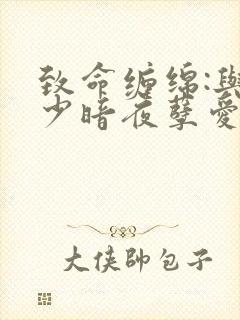 致命缠绵:與
少暗夜孽爱
大侠帥包子